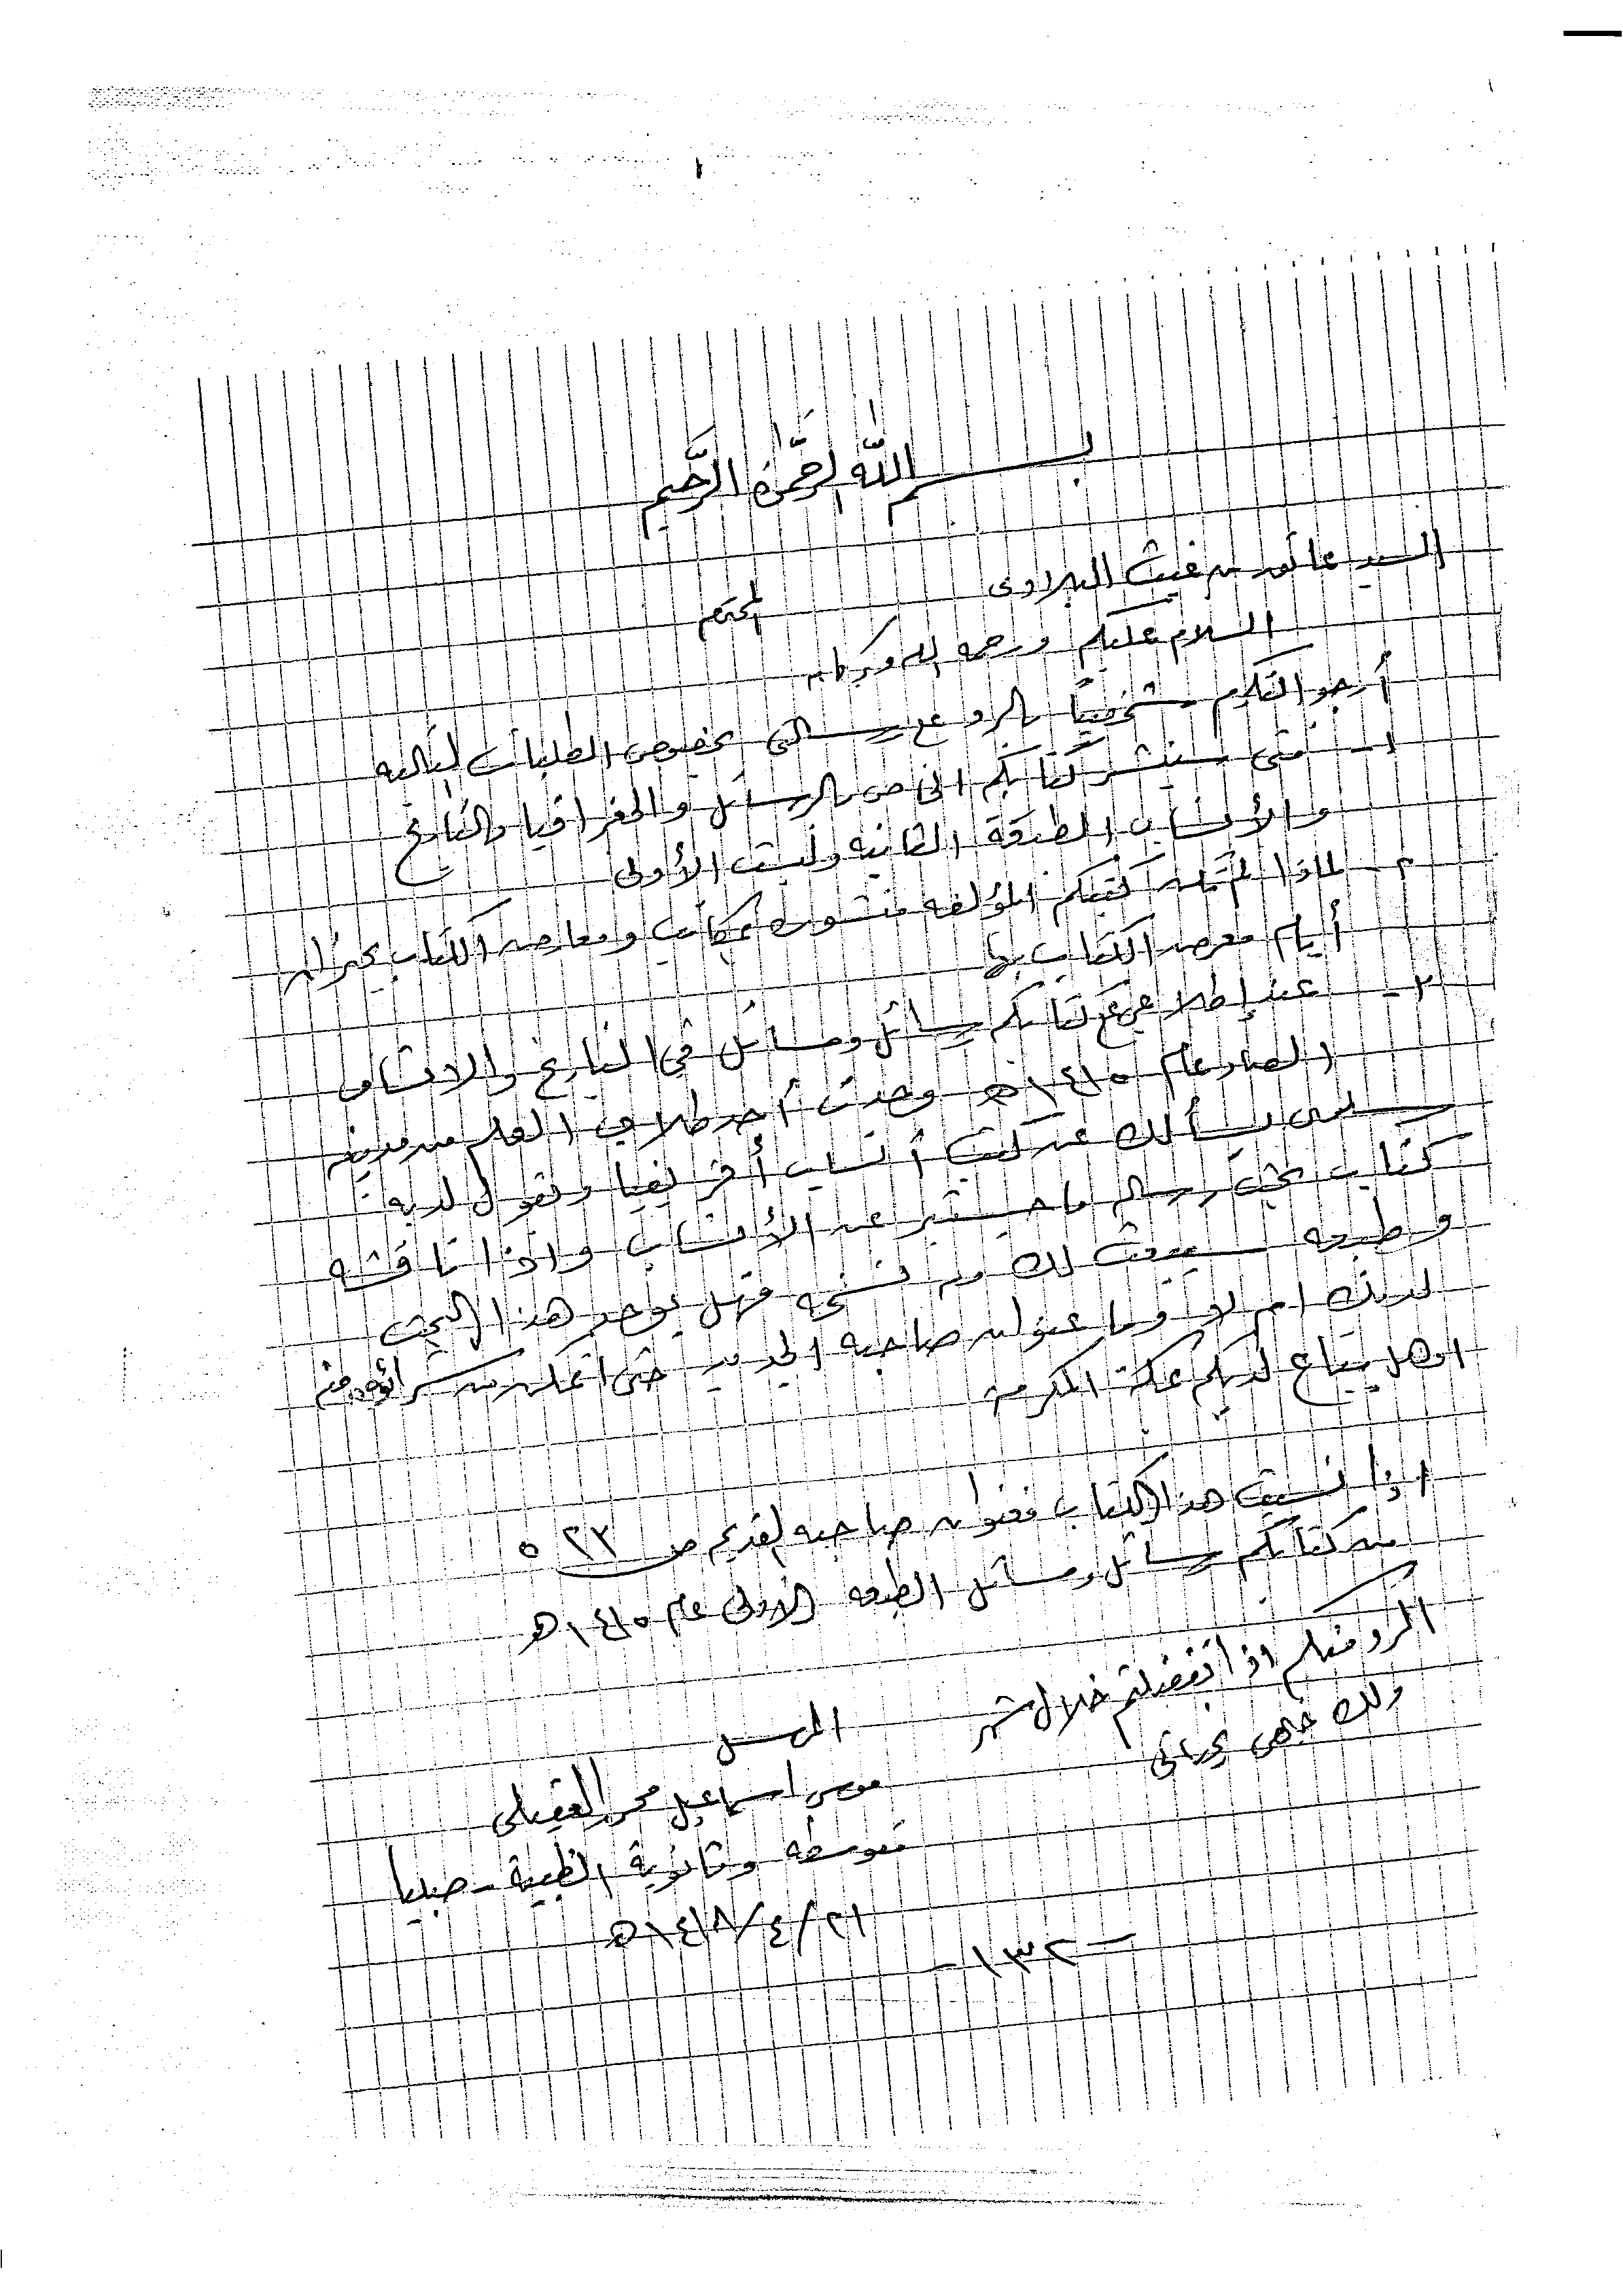 بسم الله الرحمن الرحيم
السيد عاتق بن غيث البلادى المحترم
السلام عليكم ورحمه الله وبركاته
أرجو التكرم شخصيًا بالرد على رسالتى بخصوص الطلبات التاليه
١- متى سينشر كتابكم الخاص بالرسائل والجغرافيا والتاريخ
والأنساب الطبعة الثانيه وليست الأولى
٢- لماذا لم تكن كتبكم المؤلفه منشوره بمكاتب ومعارض الكتاب
أيام معرض الكتاب بها
٣- عند إطلاعي على كتابكم رسائل ومسائل في التاريخ والانساب
الصادر عام ١٤١٥هـ وجدت أحد طلاب العلم من مدينه
يسألك عن كتب أنساب أفريقيا وتقول لديه
كتاب بحث رساله ماجستير عن الأنساب واذا ناقشه
وطبعه سيبعث لك منه نسخه فهل يوجد هذا البحث
لديك ام لا وما عنوان صاحبه الجديد حتى اتمكن من شرائه منه
اوهل يباع لديكم بمكة المكرمه
اذا نسيت هذا الكتاب فعنوان صاحبه القديم ص ٢٢٥
من كتابكم رسائل ومسائل الطبعه الأولى عام ١٤١٥هـ
الرد منكم اذا تفضلتم خلال شهر
ولك خالص تحياتى
المرسل
موسى اسماعيل محمد العقيلى
متوسطه وثانوية الظبية - صبيا
٢١/٤/١٤١٨هـ
- ١٣٢ -